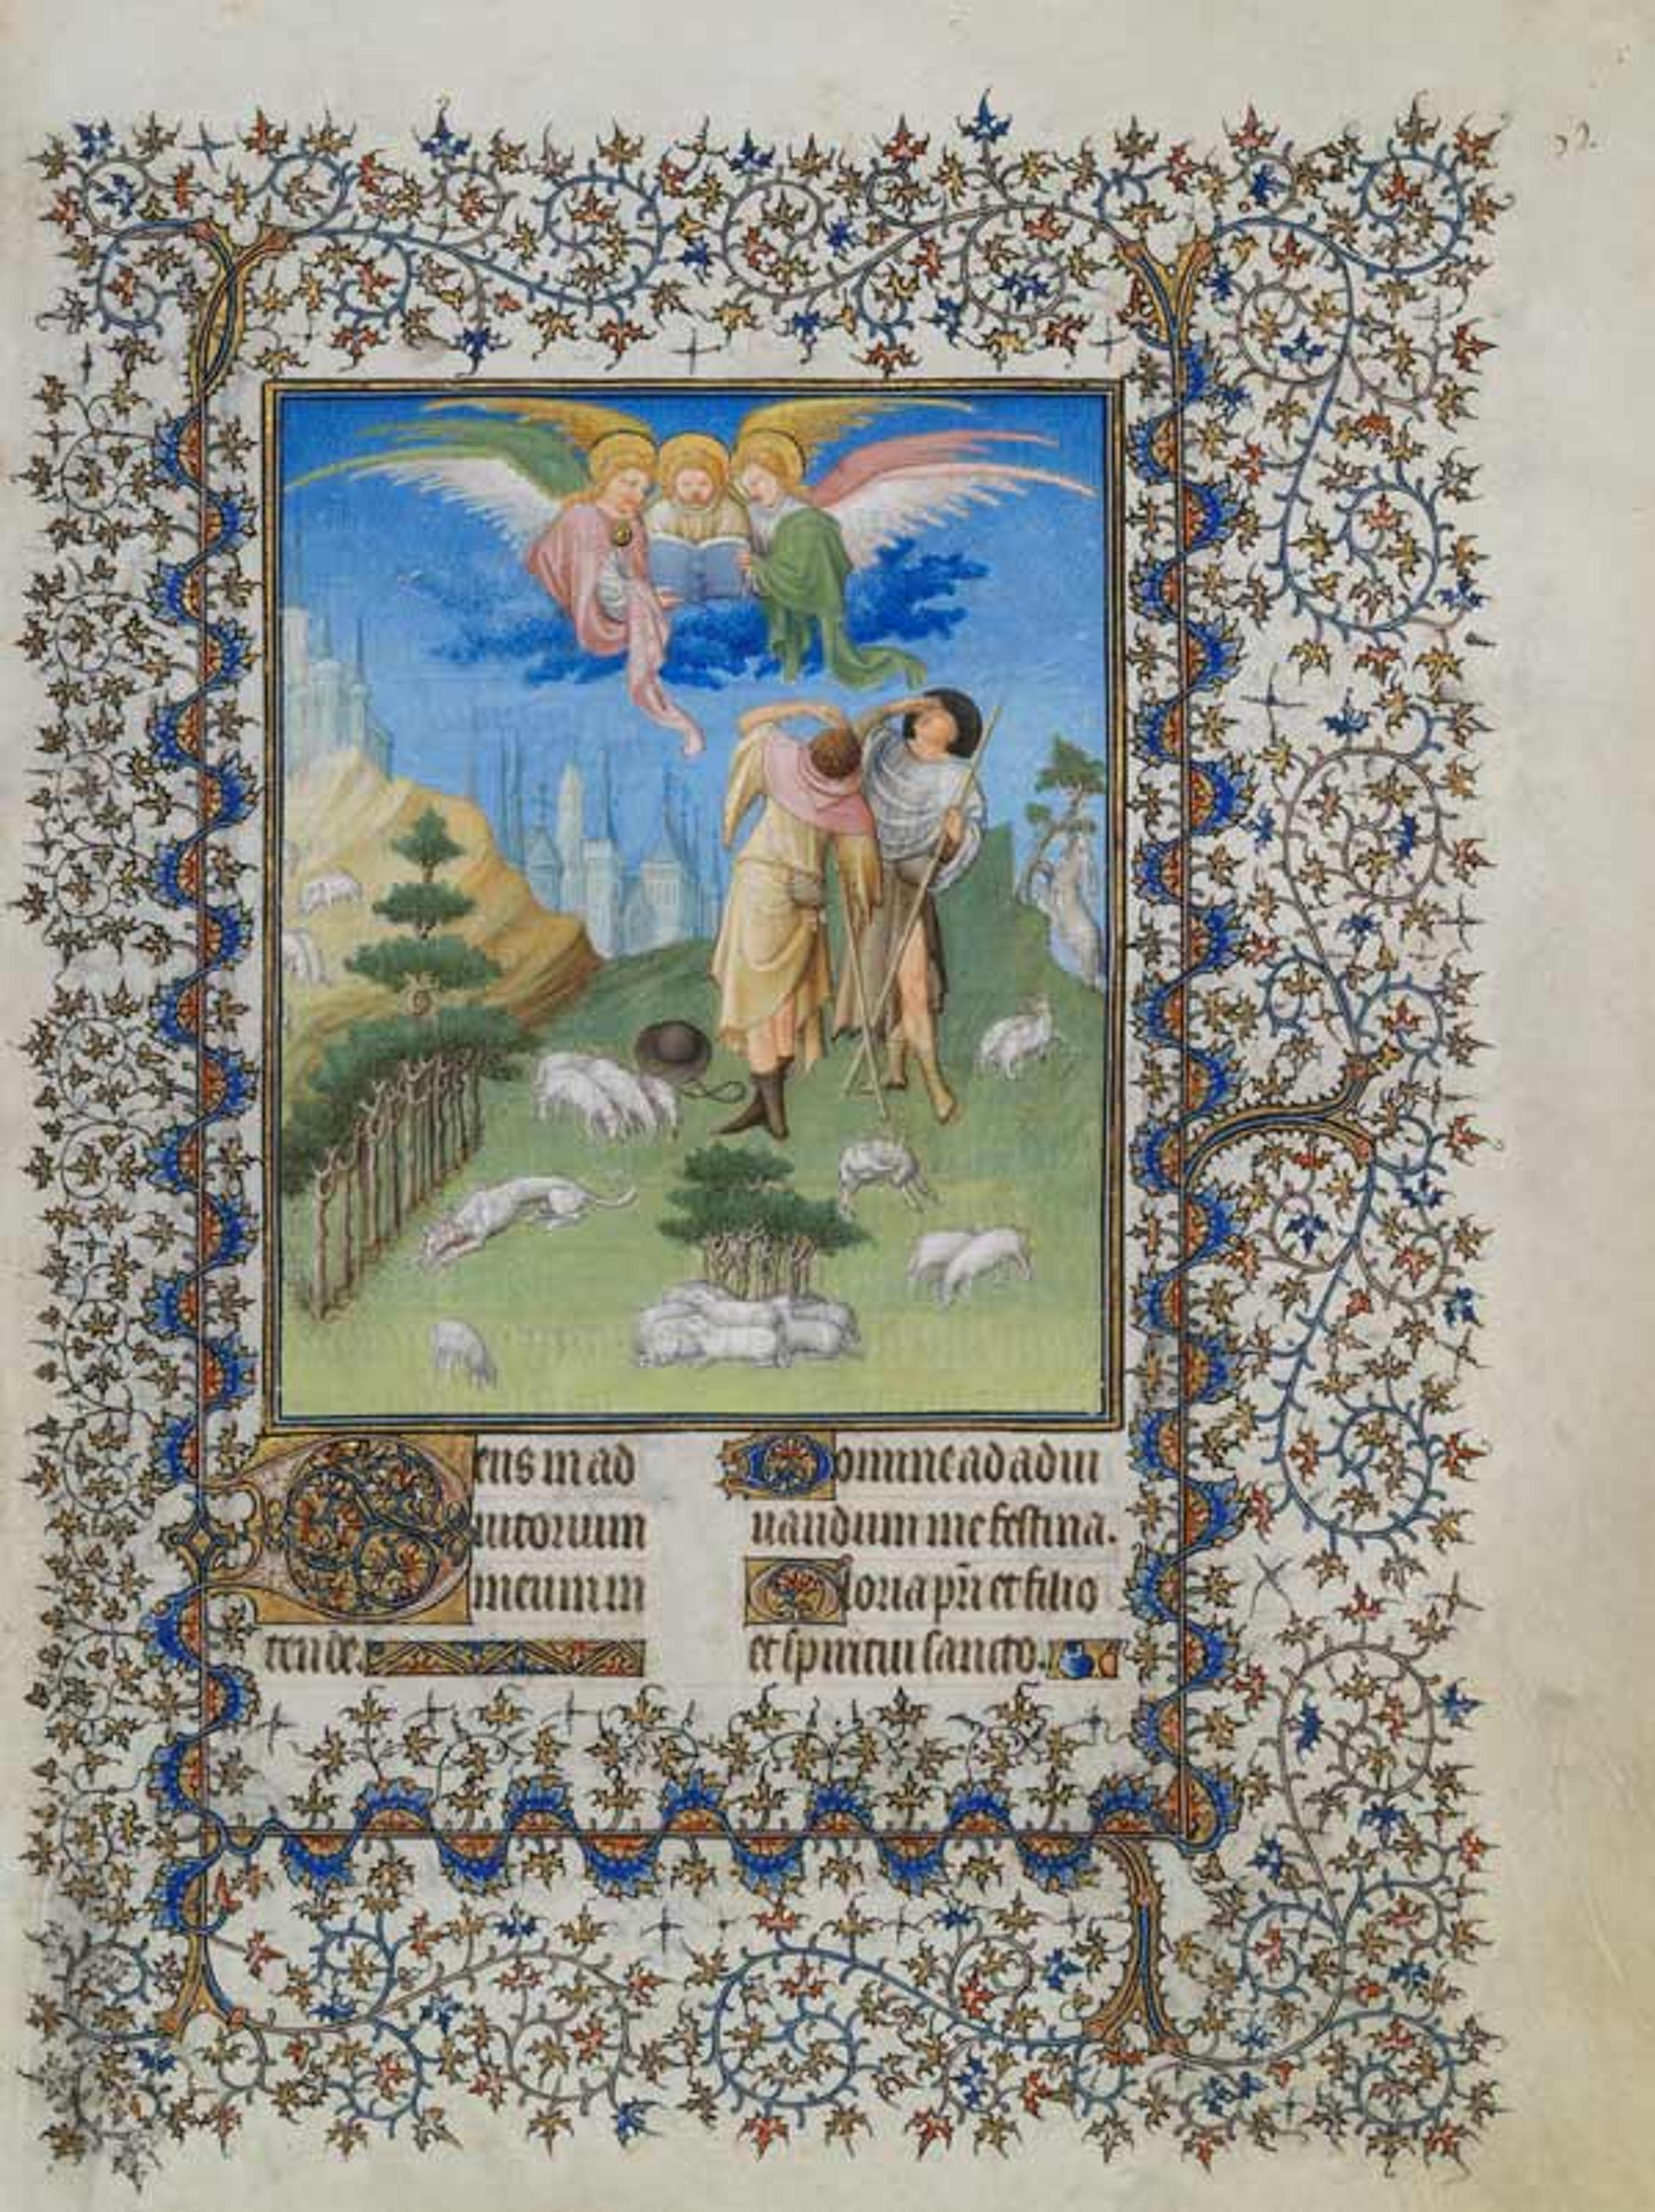 Deus in ad
iutorium
meum in
tende.
Domine ad adiu
uandum me festina.
Gloria pr̄i et filio
et spiritui sancto.